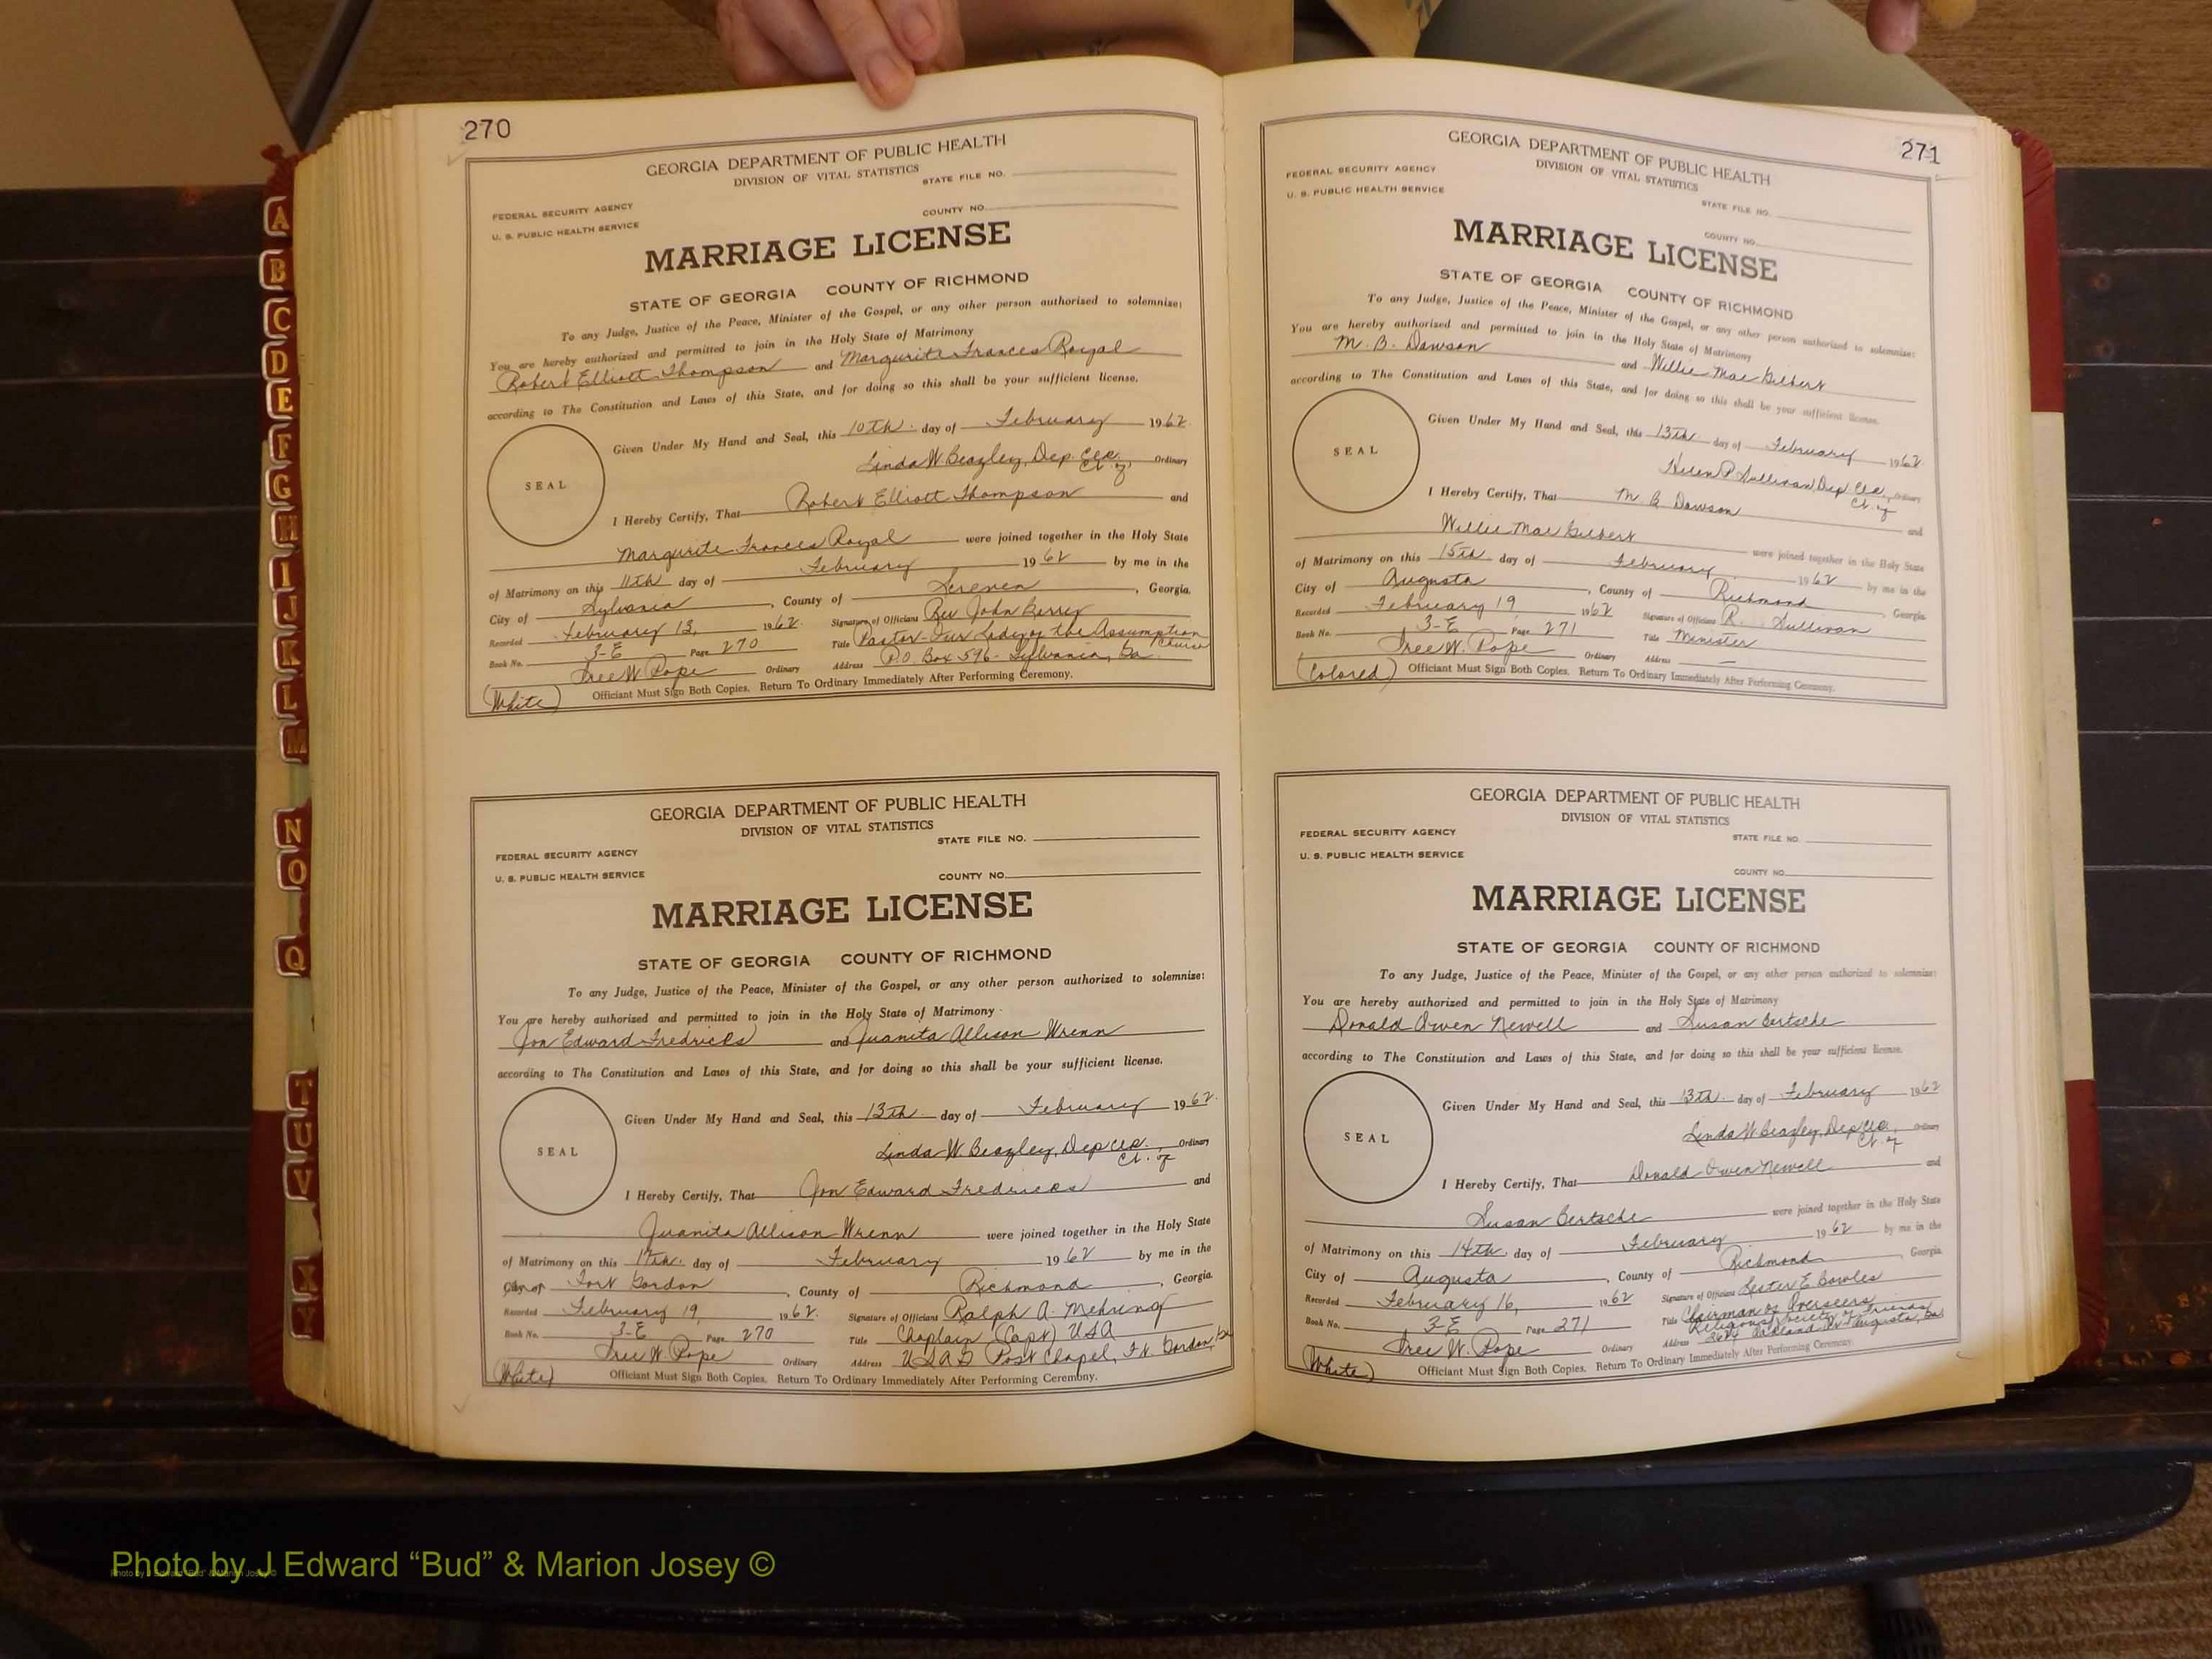 270
GEORGIA DEPARTMENT OF PUBLIC HEALTH
DIVISION OF VITAL STATISTICS
STATE FILE NO.
FEDERAL SECURITY AGENCY
U. S. PUBLIC HEALTH SERVICE
COUNTY NO.
MARRIAGE LICENSE
STATE OF GEORGIA COUNTY OF RICHMOND
To any Judge, Justice of the Peace, Minister of the Gospel, or any other person authorized to solemnize:
You are hereby authorized and permitted to join in the Holy State of Matrimony
Robert Elliott Thompson and Margurite Frances Royal
according to The Constitution and Laws of this State, and for doing so this shall be your sufficient license.
SEAL
Given Under My Hand and Seal, this 10th. day of February 1962.
Linda W. Beazley, Dep. Clk. Ct. of Ordinary
I Hereby Certify, That Robert Elliott Thompson and
Margurite Frances Royal were joined together in the Holy State
of Matrimony on this 11th day of February 1962 by me in the
City of Sylvania, County of Screven, Georgia.
Recorded February 13, 1962. Signature of Officiant Rev John
Book No. 3-E Page 270 Title Pastor-Our Lady of the Assumption Church
Tree W. Pope Ordinary Address P.O. Box 596- Sylvania, Ga.
(White) Officiant Must Sign Both Copies. Return To Ordinary Immediately After Performing Ceremony.
GEORGIA DEPARTMENT OF PUBLIC HEALTH
DIVISION OF VITAL STATISTICS
STATE FILE NO.
FEDERAL SECURITY AGENCY
U. S. PUBLIC HEALTH SERVICE
COUNTY NO.
MARRIAGE LICENSE
STATE OF GEORGIA COUNTY OF RICHMOND
To any Judge, Justice of the Peace, Minister of the Gospel, or any other person authorized to solemnize:
You are hereby authorized and permitted to join in the Holy State of Matrimony
Jon Edward Fredricks and Juanita Allison Wrenn
according to The Constitution and Laws of this State, and for doing so this shall be your sufficient license.
SEAL
Given Under My Hand and Seal, this 13th day of February 1962.
Linda W. Beazley, Dep Clk. Ct. of Ordinary
I Hereby Certify, That Jon Edward Fredricks and
Juanita Allison Wrenn were joined together in the Holy State
of Matrimony on this 17th. day of February 1962 by me in the
City of Fort Gordon, County of Richmond, Georgia.
Recorded February 19, 1962. Signature of Officiant Ralph A. Mehring
Book No. 3-E Page 270 Title Chaplain (Capt) USA
Tree W. Pope Ordinary Address USAG Post Chapel, Ft. Gordon, Ga
(White) Officiant Must Sign Both Copies. Return To Ordinary Immediately After Performing Ceremony.
271
GEORGIA DEPARTMENT OF PUBLIC HEALTH
DIVISION OF VITAL STATISTICS
FEDERAL SECURITY AGENCY
U. S. PUBLIC HEALTH SERVICE
STATE FILE NO.
COUNTY NO.
MARRIAGE LICENSE
STATE OF GEORGIA COUNTY OF RICHMOND
To any Judge, Justice of the Peace, Minister of the Gospel, or any other person authorized to solemnize:
You are hereby authorized and permitted to join in the Holy State of Matrimony
M. B. Dawson and Willie Mae Gilbert
according to The Constitution and Laws of this State, and for doing so this shall be your sufficient license.
SEAL
Given Under My Hand and Seal, this 13th day of February 1962.
Helen P. Sullivan, Dep. Clk. Ct. of Ordinary
I Hereby Certify, That M B Dawson and
Willie Mae Gilbert were joined together in the Holy State
of Matrimony on this 15th day of February 1962 by me in the
City of Augusta, County of Richmond, Georgia.
Recorded February 19 1962 Signature of Officiant R. Sullivan
Book No. 3-E Page 271 Title Minister
Tree W. Pope Ordinary Address —
(Colored) Officiant Must Sign Both Copies. Return To Ordinary Immediately After Performing Ceremony.
GEORGIA DEPARTMENT OF PUBLIC HEALTH
DIVISION OF VITAL STATISTICS
FEDERAL SECURITY AGENCY
STATE FILE NO.
U. S. PUBLIC HEALTH SERVICE
COUNTY NO.
MARRIAGE LICENSE
STATE OF GEORGIA COUNTY OF RICHMOND
To any Judge, Justice of the Peace, Minister of the Gospel, or any other person authorized to solemnize:
You are hereby authorized and permitted to join in the Holy State of Matrimony
Donald Owen Newell and Susan Bertsche
according to The Constitution and Laws of this State, and for doing so this shall be your sufficient license.
SEAL
Given Under My Hand and Seal, this 13th. day of February 1962
Linda W Beazley, Dep Clk. Ct. of Ordinary
I Hereby Certify, That Donald Owen Newell and
Susan Bertsche were joined together in the Holy State
of Matrimony on this 14th. day of February 1962 by me in the
City of Augusta, County of Richmond, Georgia.
Recorded February 16, 1962 Signature of Officiant Lester E Bowles
Book No. 3-E Page 271 Title Chairman of Overseers Religious Society of Friends
Tree W. Pope Ordinary Address Dr Augusta, Ga.
(White) Officiant Must Sign Both Copies. Return To Ordinary Immediately After Performing Ceremony.
A
B
C
D
E
F
G
H
I
J
K
L
M
N
O
Q
T
U
V
X
Y
Photo by J Edward “Bud” & Marion Josey ©
Photo by J Edward “Bud” & Marion Josey ©